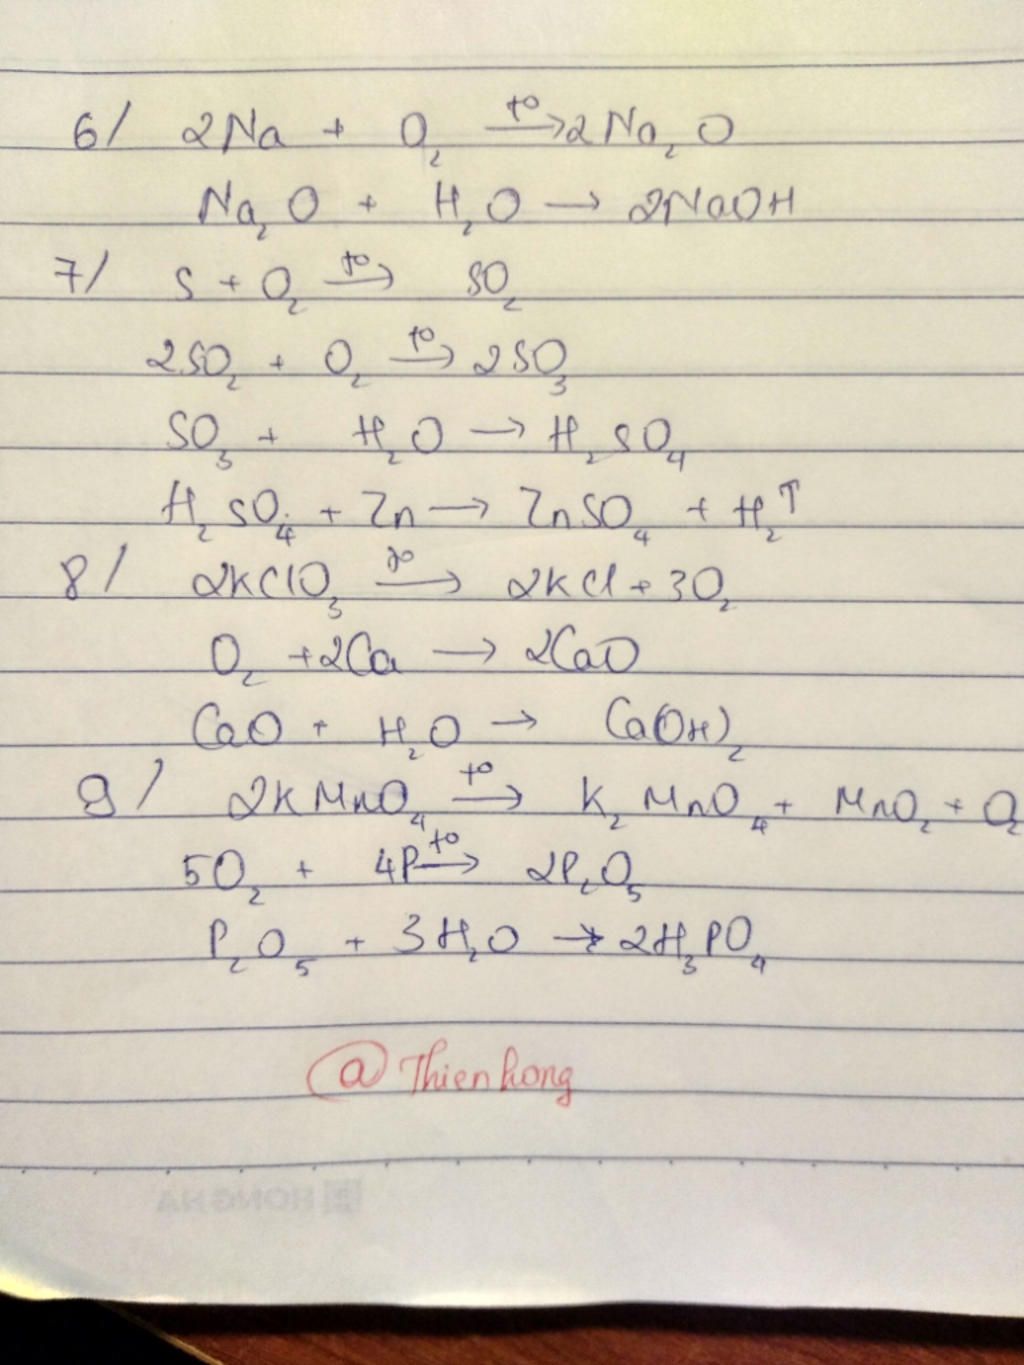 6/ 2Na + O₂ →(t°) 2Na₂O
Na₂O + H₂O → 2NaOH
7/ S + O₂ →(t°) SO₂
2SO₂ + O₂ →(t°) 2SO₃
SO₃ + H₂O → H₂SO₄
H₂SO₄ + Zn → ZnSO₄ + H₂↑
8/ 2KClO₃ →(t°) 2KCl + 3O₂
O₂ + 2Ca → 2CaO
CaO + H₂O → Ca(OH)₂
9/ 2KMnO₄ →(t°) K₂MnO₄ + MnO₂ + O₂
5O₂ + 4P →(t°) 2P₂O₅
P₂O₅ + 3H₂O → 2H₃PO₄
@Thienhong
HONG HA